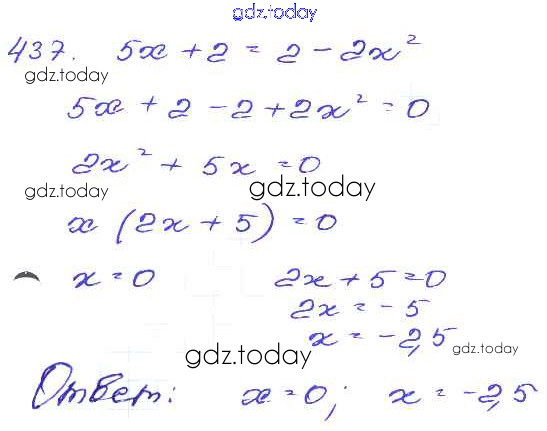 gdz.today
437. 5x + 2 = 2 - 2x²
gdz.today
5x + 2 - 2 + 2x² = 0
2x² + 5x = 0
gdz.today gdz.today
x (2x + 5) = 0
x = 0 2x + 5 = 0
2x = - 5
x = - 2,5
gdz.today gdz.today
Ответ: x = 0; x = - 2,5